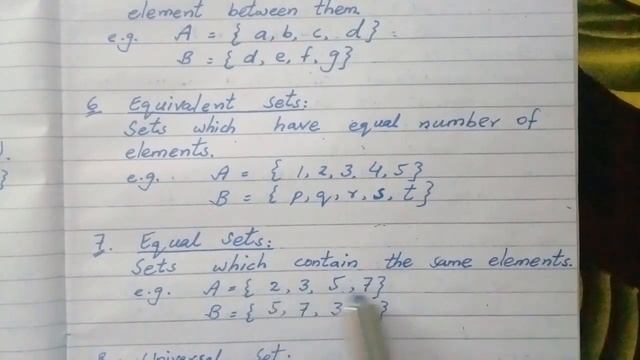 element between them
e.g. A = { a, b, c, d }
B = { d, e, f, g }
6 Equivalent sets:
Sets which have equal number of
elements.
e.g. A = { 1, 2, 3, 4, 5 }
B = { p, q, r, s, t }
7. Equal sets:
Sets which contain the same elements.
e.g. A = { 2, 3, 5, 7 }
B = { 5, 7, 3 }
8. Universal Set.